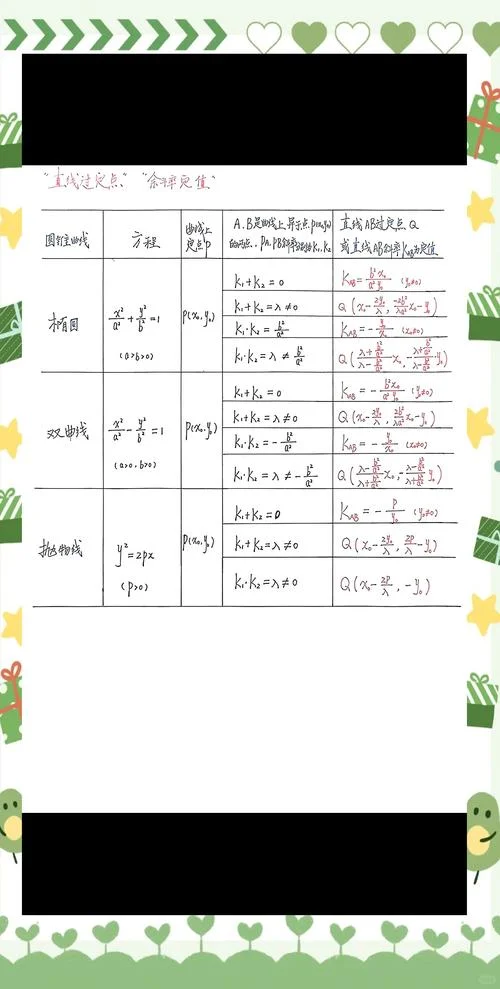 "直线过定点" "斜率定值"
圆锥曲线 方程 曲线上定点P A.B是曲线上异于点P(x₀,y₀)的两点,PA,PB斜率分别为k₁,k₂ 直线AB过定点Q或直线AB斜率K_AB为定值
椭圆 x²/a²+y²/b²=1 (a>b>0) P(x₀,y₀)
k₁+k₂=0 K_AB=b²x₀/a²y₀ (y₀≠0)
k₁+k₂=λ≠0 Q(x₀-2y₀/λ, -2b²/a²λ x₀-y₀)
k₁·k₂=b²/a² K_AB=-y₀/x₀ (x₀≠0)
k₁·k₂=λ≠b²/a² Q((λ+b²/a²)/(λ-b²/a²) x₀, -(λ+b²/a²)/(λ-b²/a²) y₀)
双曲线 x²/a²-y²/b²=1 (a>0,b>0) P(x₀,y₀)
k₁+k₂=0 K_AB=-b²x₀/a²y₀ (y₀≠0)
k₁+k₂=λ≠0 Q(x₀-2y₀/λ, 2b²/a²λ x₀-y₀)
k₁·k₂=-b²/a² K_AB=-y₀/x₀ (x₀≠0)
k₁·k₂=λ≠-b²/a² Q((λ-b²/a²)/(λ+b²/a²) x₀, -(λ-b²/a²)/(λ+b²/a²) y₀)
抛物线 y²=2px (p>0) P(x₀,y₀)
k₁+k₂=0 K_AB=-p/y₀ (y₀≠0)
k₁+k₂=λ≠0 Q(x₀-2y₀/λ, 2p/λ-y₀)
k₁·k₂=λ≠0 Q(x₀-2p/λ, -y₀)